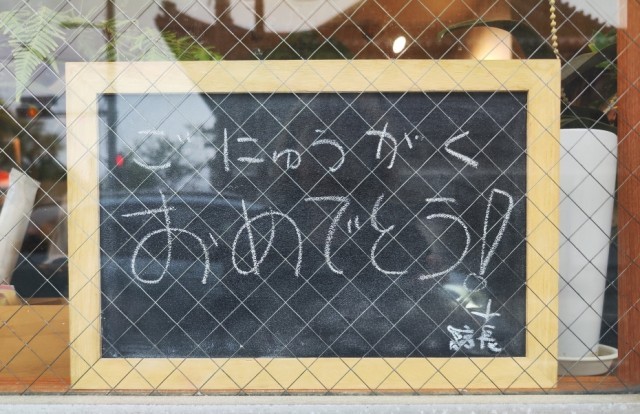 ごにゅうがく
おめでとう!